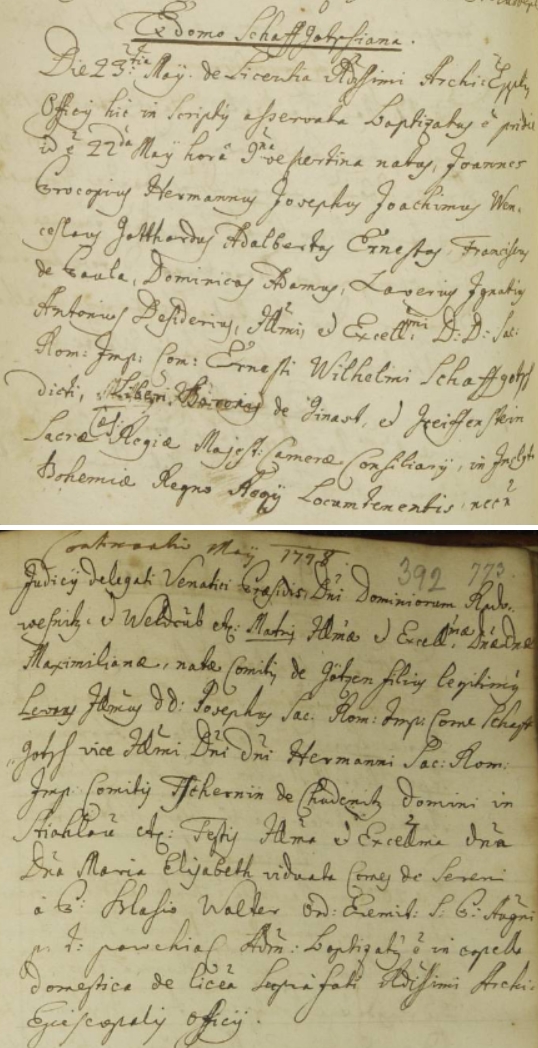 Ex domo Schaffgotsiana.
Die 23tia May. de Licentia Rdssimi Archi-Eppalis
Officij hic in Scriptis asservata Baptizatus ē pridie
id ē 22da May horâ 9na vespertina natus, Joannes
Procopius Hermannus Josephus Joachimus Wen-
ceslaus Gotthardus Adalbertus Ernestus, Franciscus
de Paula, Dominicus Adamus, Xaverius Ignatius
Antonius Desiderius, Illmi, et Excellmi D: D: Sac:
Rom: Imp: Com: Ernesti Wilhelmi Schaffgotsch
dicti, Liberi Baronis de Kinast, et Greiffenstein
Sacræ Cæs: Regiæ Majest: Cameræ Consiliarij, in Inclyto
Bohemiæ Regno Regij Locumtenentis, necñ
Continuatio May 1748.
392 773
Judicij delegati Venatici Præsidis, Dñi Dominiorum Rado-
wesnitz et Weldrub etc: Matris Illmæ et Excellmæ, Dñæ Dñæ
Maximilianæ, natæ Comitis de Götzen filius legitimus
Levans Illmus d d: Josephus Sac: Rom: Imp: Come Schaff
gotsch vice Illmi Dñi dñi Hermanni Sac: Rom:
Imp: Comitis Tschernin de Chudenitz domini in
Stiahlau etc: Testis Illma et Excellma dña
Dña Maria Elisabeth viduata Comes de Sereni
à P: Blasio Walter Ord: Eremit: S: P: Augni
p. t: parochiæ Adm: Baptizatus ē in capella
domestica de licēa supra fati Rdissimi Archi-
Episcopalis Officij.